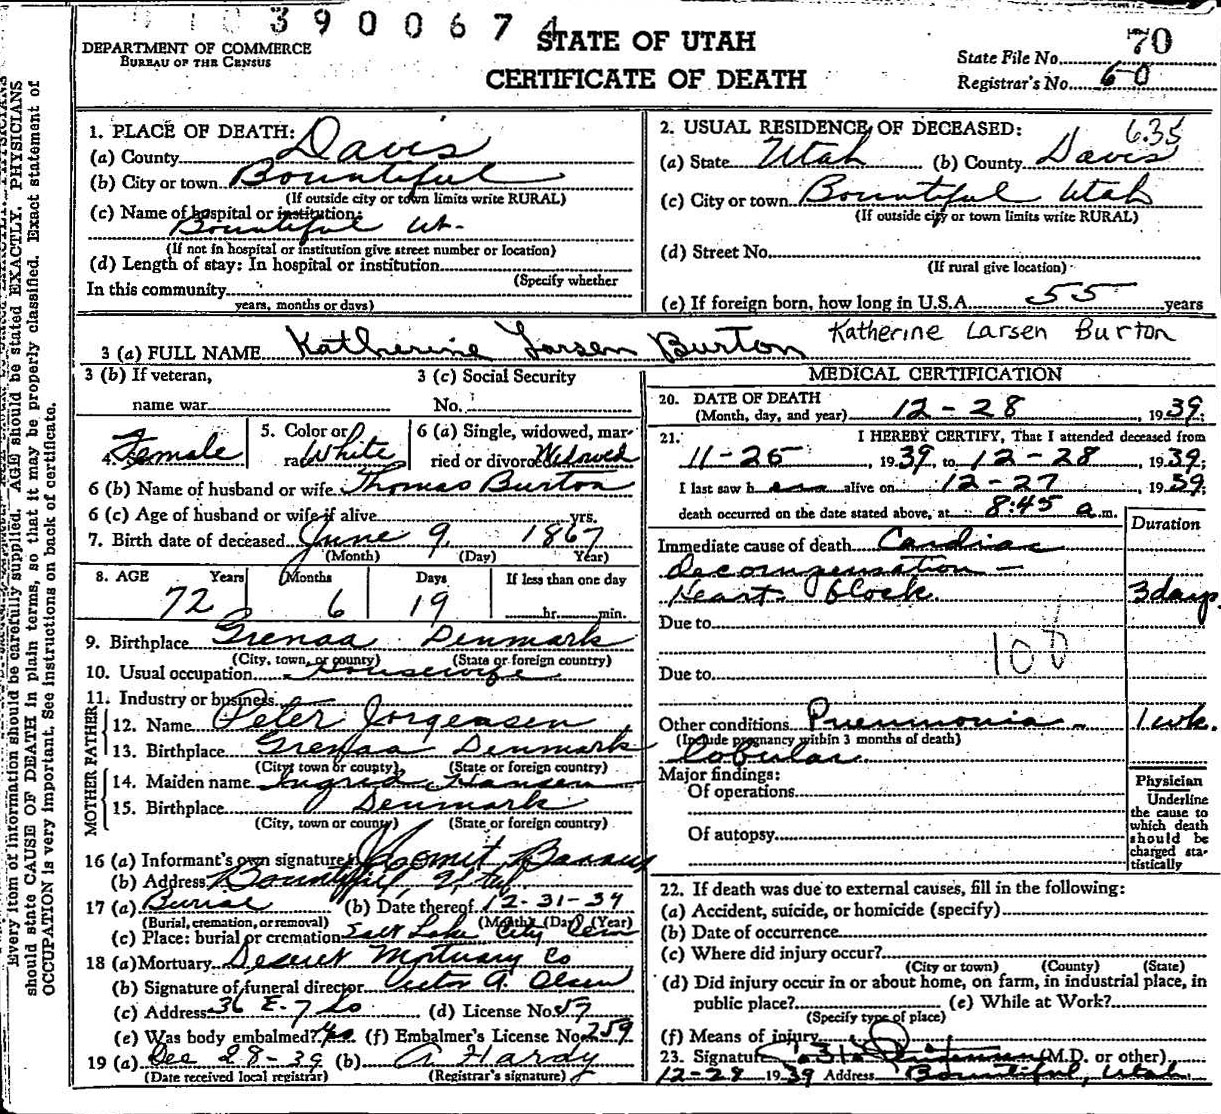 3900674
DEPARTMENT OF COMMERCE
BUREAU OF THE CENSUS
STATE OF UTAH
CERTIFICATE OF DEATH
70
State File No.
Registrar's No. 60
Every item of information should be carefully supplied. AGE should be stated EXACTLY. PHYSICIANS
should state CAUSE OF DEATH in plain terms, so that it may be properly classified. Exact statement of
OCCUPATION is very important. See instructions on back of certificate.
1. PLACE OF DEATH:
(a) County Davis
(b) City or town Bountiful
(If outside city or town limits write RURAL)
(c) Name of hospital or institution:
Bountiful Ut.
(If not in hospital or institution give street number or location)
(d) Length of stay: In hospital or institution
(Specify whether
In this community
years, months or days)
2. USUAL RESIDENCE OF DECEASED: 635
(a) State Utah (b) County Davis
(c) City or town Bountiful Utah
(If outside city or town limits write RURAL)
(d) Street No.
(If rural give location)
(e) If foreign born, how long in U.S.A. 55 years
3 (a) FULL NAME Katherine Larsen Burton Katherine Larsen Burton
3 (b) If veteran,
name war
3 (c) Social Security
No.
4. Female
5. Color or
race White
6 (a) Single, widowed, mar-
ried or divorced Widowed
6 (b) Name of husband or wife Thomas Burton
6 (c) Age of husband or wife if alive yrs.
7. Birth date of deceased June 9, 1867
(Month) (Day) Year)
8. AGE Years Months Days If less than one day
72 6 19 hr. min.
9. Birthplace Grenaa Denmark
(City, town, or county) (State or foreign country)
10. Usual occupation Housewife
11. Industry or business
FATHER
12. Name Peter Jorgensen
13. Birthplace Grenaa Denmark
(City, town or county) (State or foreign country)
MOTHER
14. Maiden name Ingrid Hansen
15. Birthplace Denmark
(City, town or county) (State or foreign country)
16 (a) Informant's own signature
(b) Address Bountiful, Utah
17 (a) Burial (b) Date thereof 12-31-39
(Burial, cremation, or removal) (Month) (Day) (Year)
(c) Place: burial or cremation Salt Lake City Cem
18 (a) Mortuary Deseret Mortuary Co
(b) Signature of funeral director Victor A. Olsen
(c) Address 36 E. 7 So (d) License No. 57
(e) Was body embalmed? Yes (f) Embalmer's License No. 259
19 (a) Dec 28-39 (b) A Hardy
(Date received local registrar) (Registrar's signature)
MEDICAL CERTIFICATION
20. DATE OF DEATH
(Month, day, and year) 12-28, 1939;
21. I HEREBY CERTIFY, That I attended deceased from
11-25, 1939, to 12-28, 1939;
I last saw h alive on 12-27, 1939;
death occurred on the date stated above, at 8:45 a.m.
Duration
Immediate cause of death Cardiac
decompensation -
Heart block. 3 days.
Due to
108
Due to
Other conditions Pneumonia - 1 wk.
(Include pregnancy within 3 months of death)
lobular
Major findings:
Of operations
Of autopsy
Physician
Underline
the cause to
which death
should be
charged sta-
tistically
22. If death was due to external causes, fill in the following:
(a) Accident, suicide, or homicide (specify)
(b) Date of occurrence
(c) Where did injury occur?
(City or town) (County) (State)
(d) Did injury occur in or about home, on farm, in industrial place, in
public place? (e) While at Work?
(Specify type of place)
(f) Means of injury
23. Signature (M.D. or other)
12-28 1939 Address Bountiful, Utah